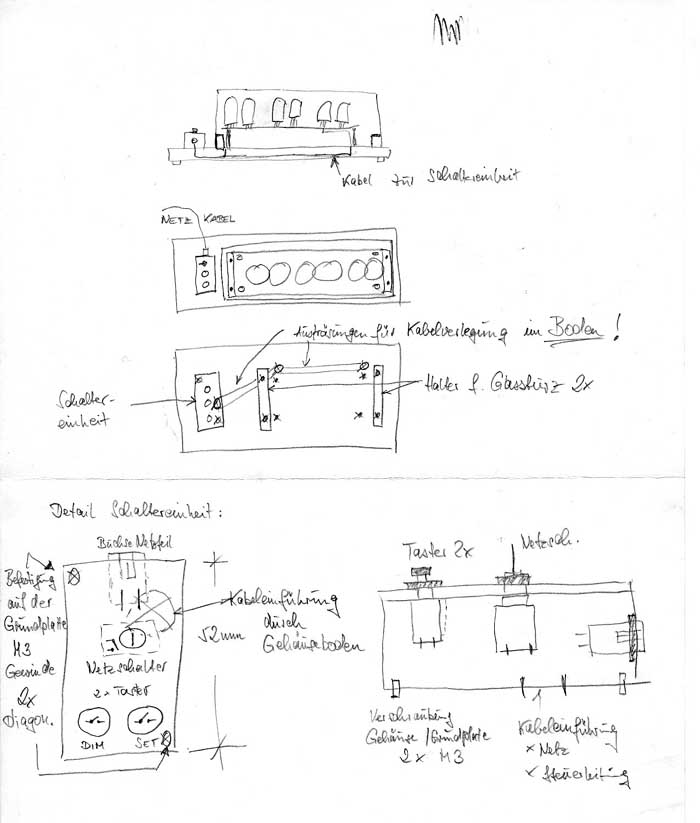 Kabel zur Schaltereinheit
NETZKABEL
Ausfräsungen für Kabelverlegung im Boden!
Schalter-
einheit
Halter f. Glassturz 2x
Detail Schaltereinheit:
Büchse Netzteil
Befestigung
auf der
Grundplatte
M3
Gewinde
2x
Diagon.
Kabeleinführung
durch
Gehäuseboden
52mm
Netzschalter
2x Taster
DIM
SET
Taster 2x
Netzsch.
Verschraubung
Gehäuse/Grundplatte
2x M3
Kabeleinführung
x Netz
x Steuerleitung